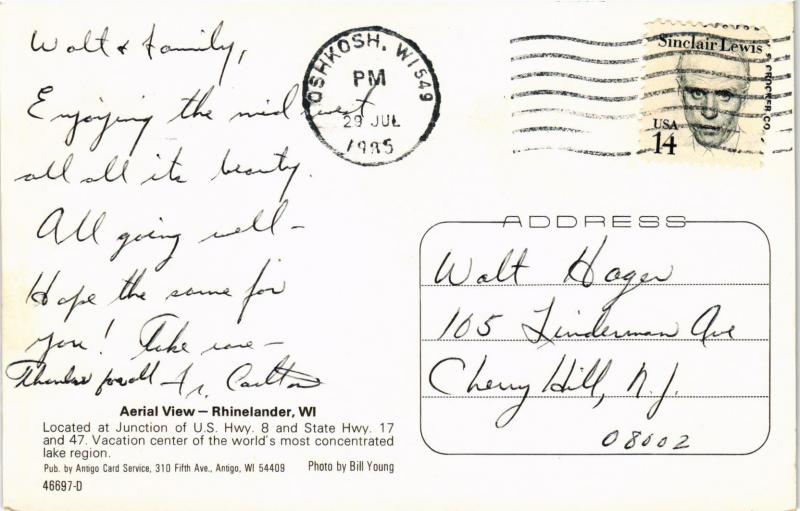 Walt & Family,
Enjoying the midwest
all all its beauty.
All going well –
Hope the same for
you! Take care –
Thanks for all – Fr. Carlton
Aerial View – Rhinelander, WI
Located at Junction of U.S. Hwy. 8 and State Hwy. 17
and 47. Vacation center of the world's most concentrated
lake region.
Pub. by Antigo Card Service, 310 Fifth Ave., Antigo, WI 54409 Photo by Bill Young
46697-D
OSHKOSH, WI 549
PM
29 JUL
1985
Sinclair Lewis
USA
14
ADDRESS
Walt Hager
105 Linderman Ave
Cherry Hill, N.J.
08002